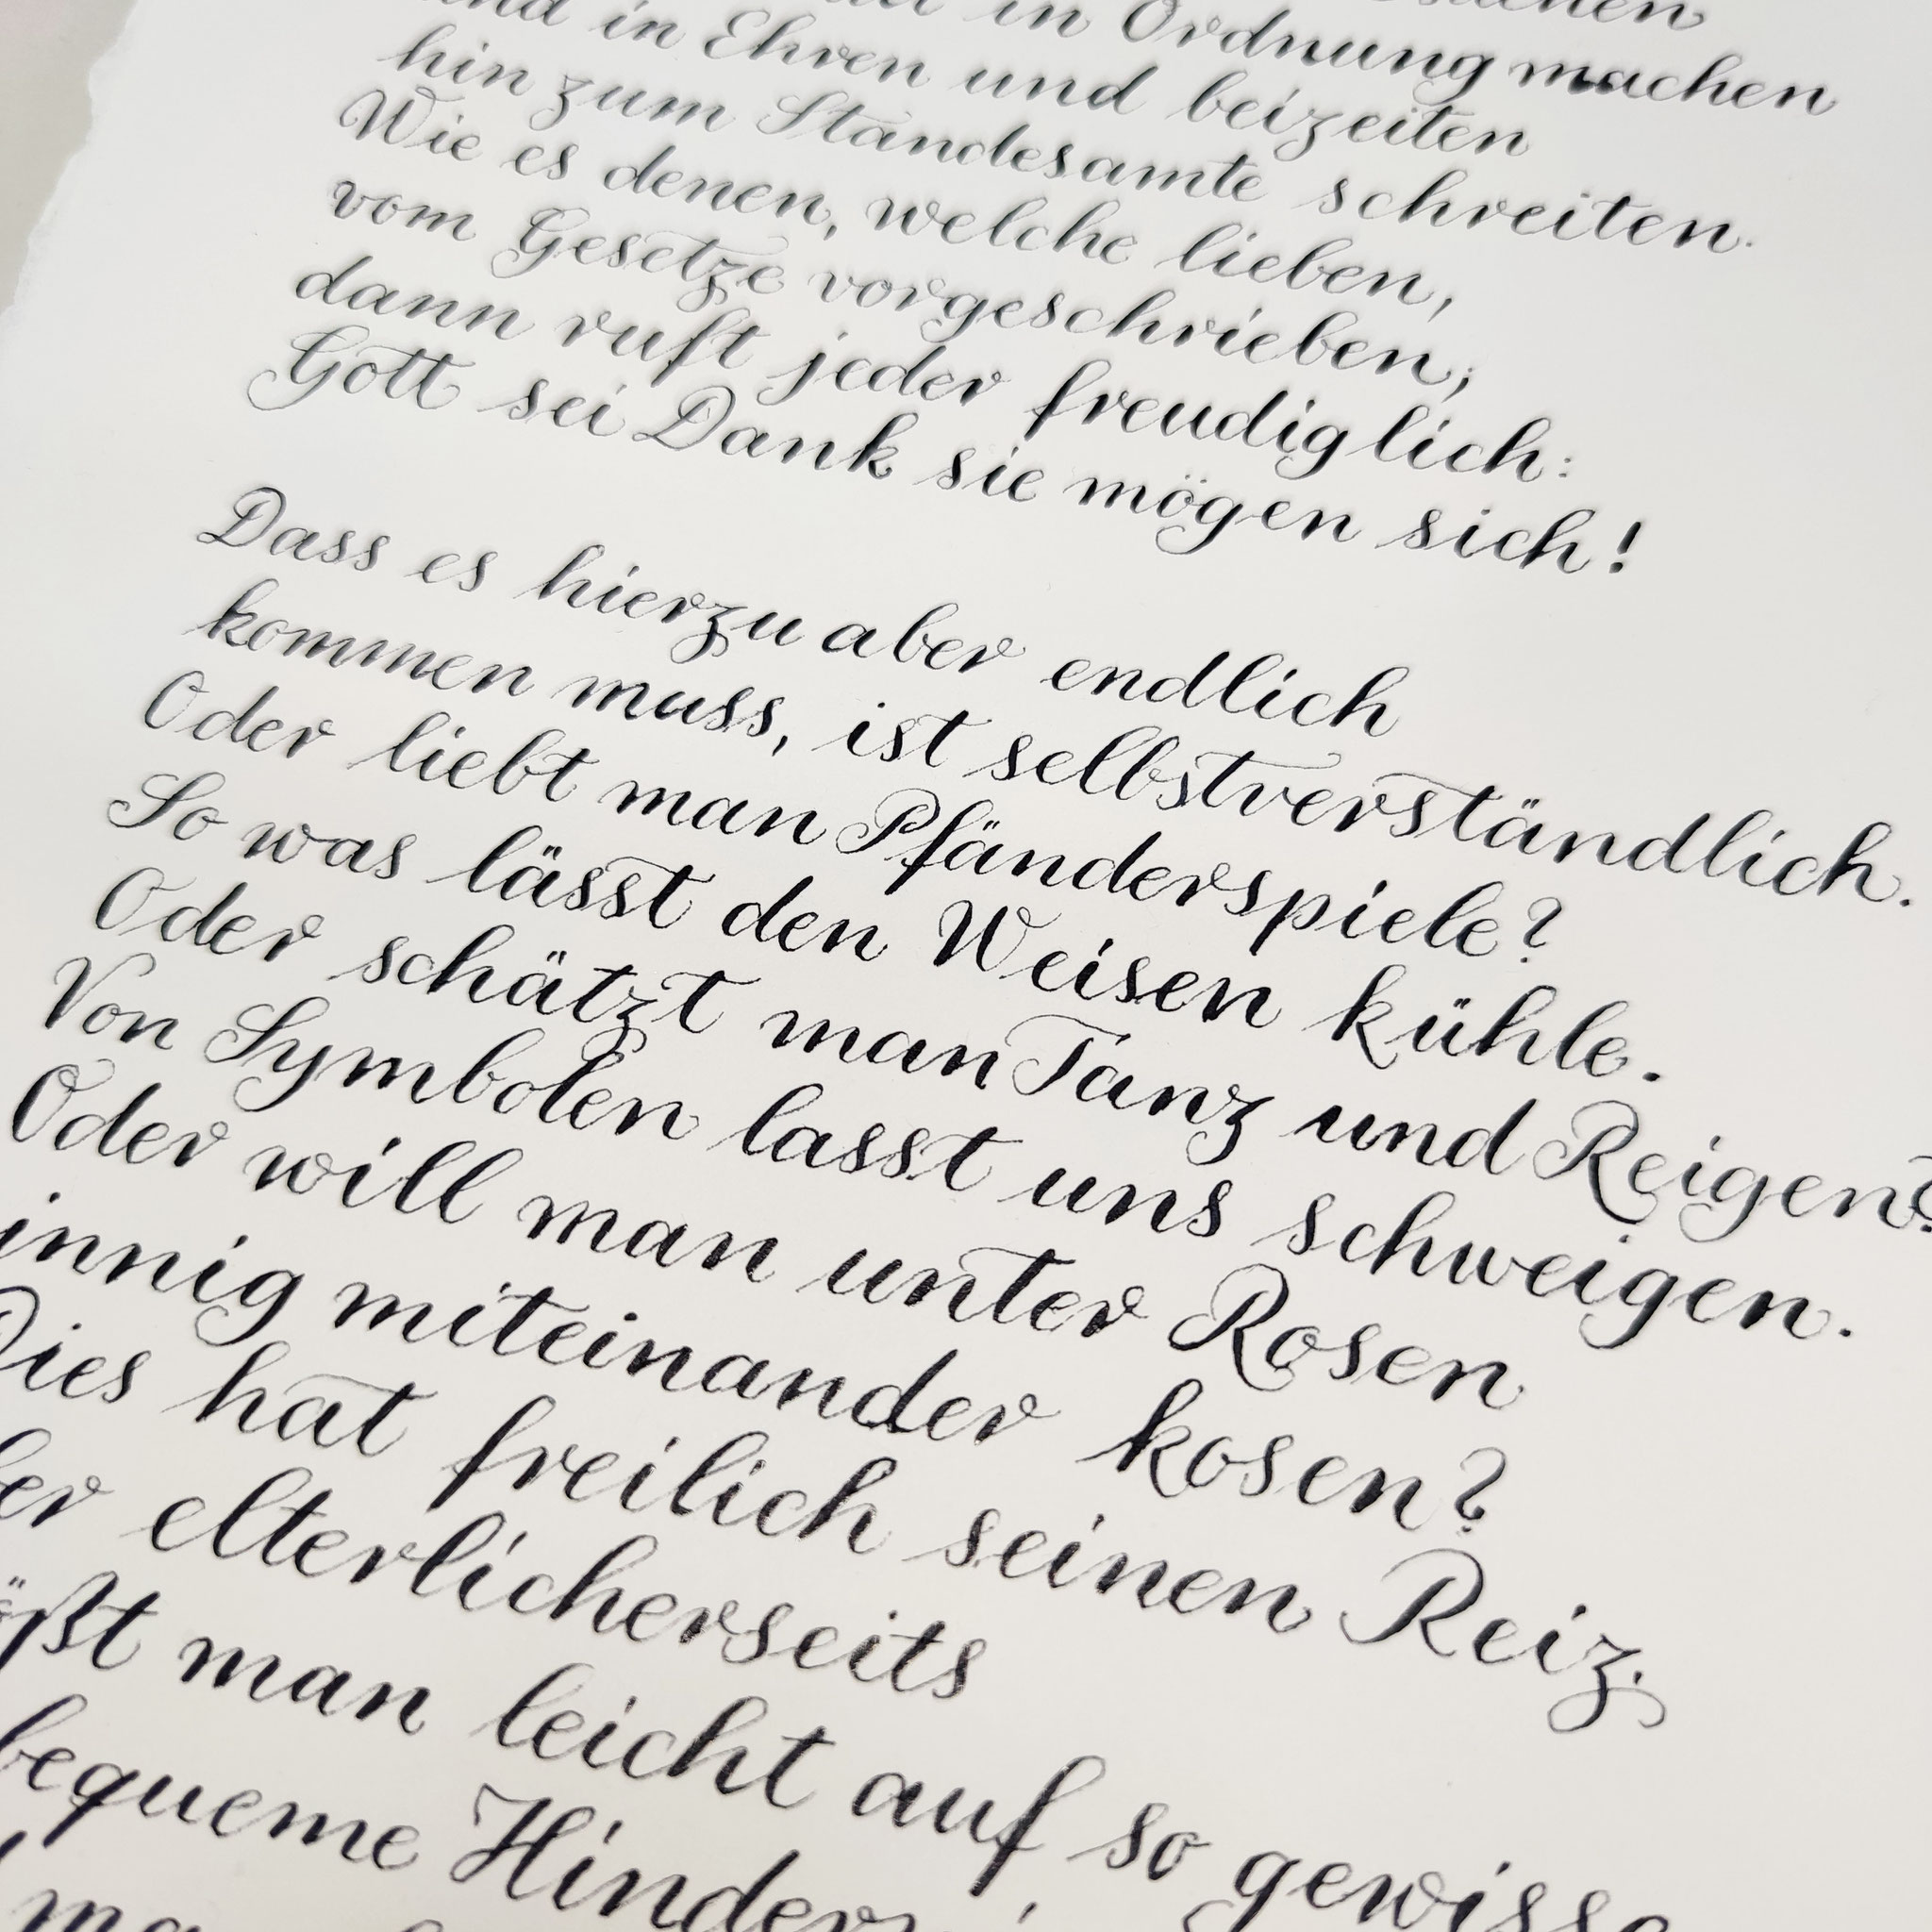 in Ordnung machen
und in Ehren und beizeiten
hin zum Standesamte schreiten.
Wie es denen, welche lieben,
vom Gesetze vorgeschrieben;
dann ruft jeder freudiglich:
Gott sei Dank sie mögen sich!
Dass es hierzu aber endlich
kommen muss, ist selbstverständlich.
Oder liebt man Pfänderspiele?
So was lässt den Weisen kühle.
Oder schätzt man Tanz und Reigen?
Von Symbolen lasst uns schweigen.
Oder will man unter Rosen
innig miteinander kosen?
Dies hat freilich seinen Reiz;
elterlicherseits
man leicht auf so gewisse
bequeme